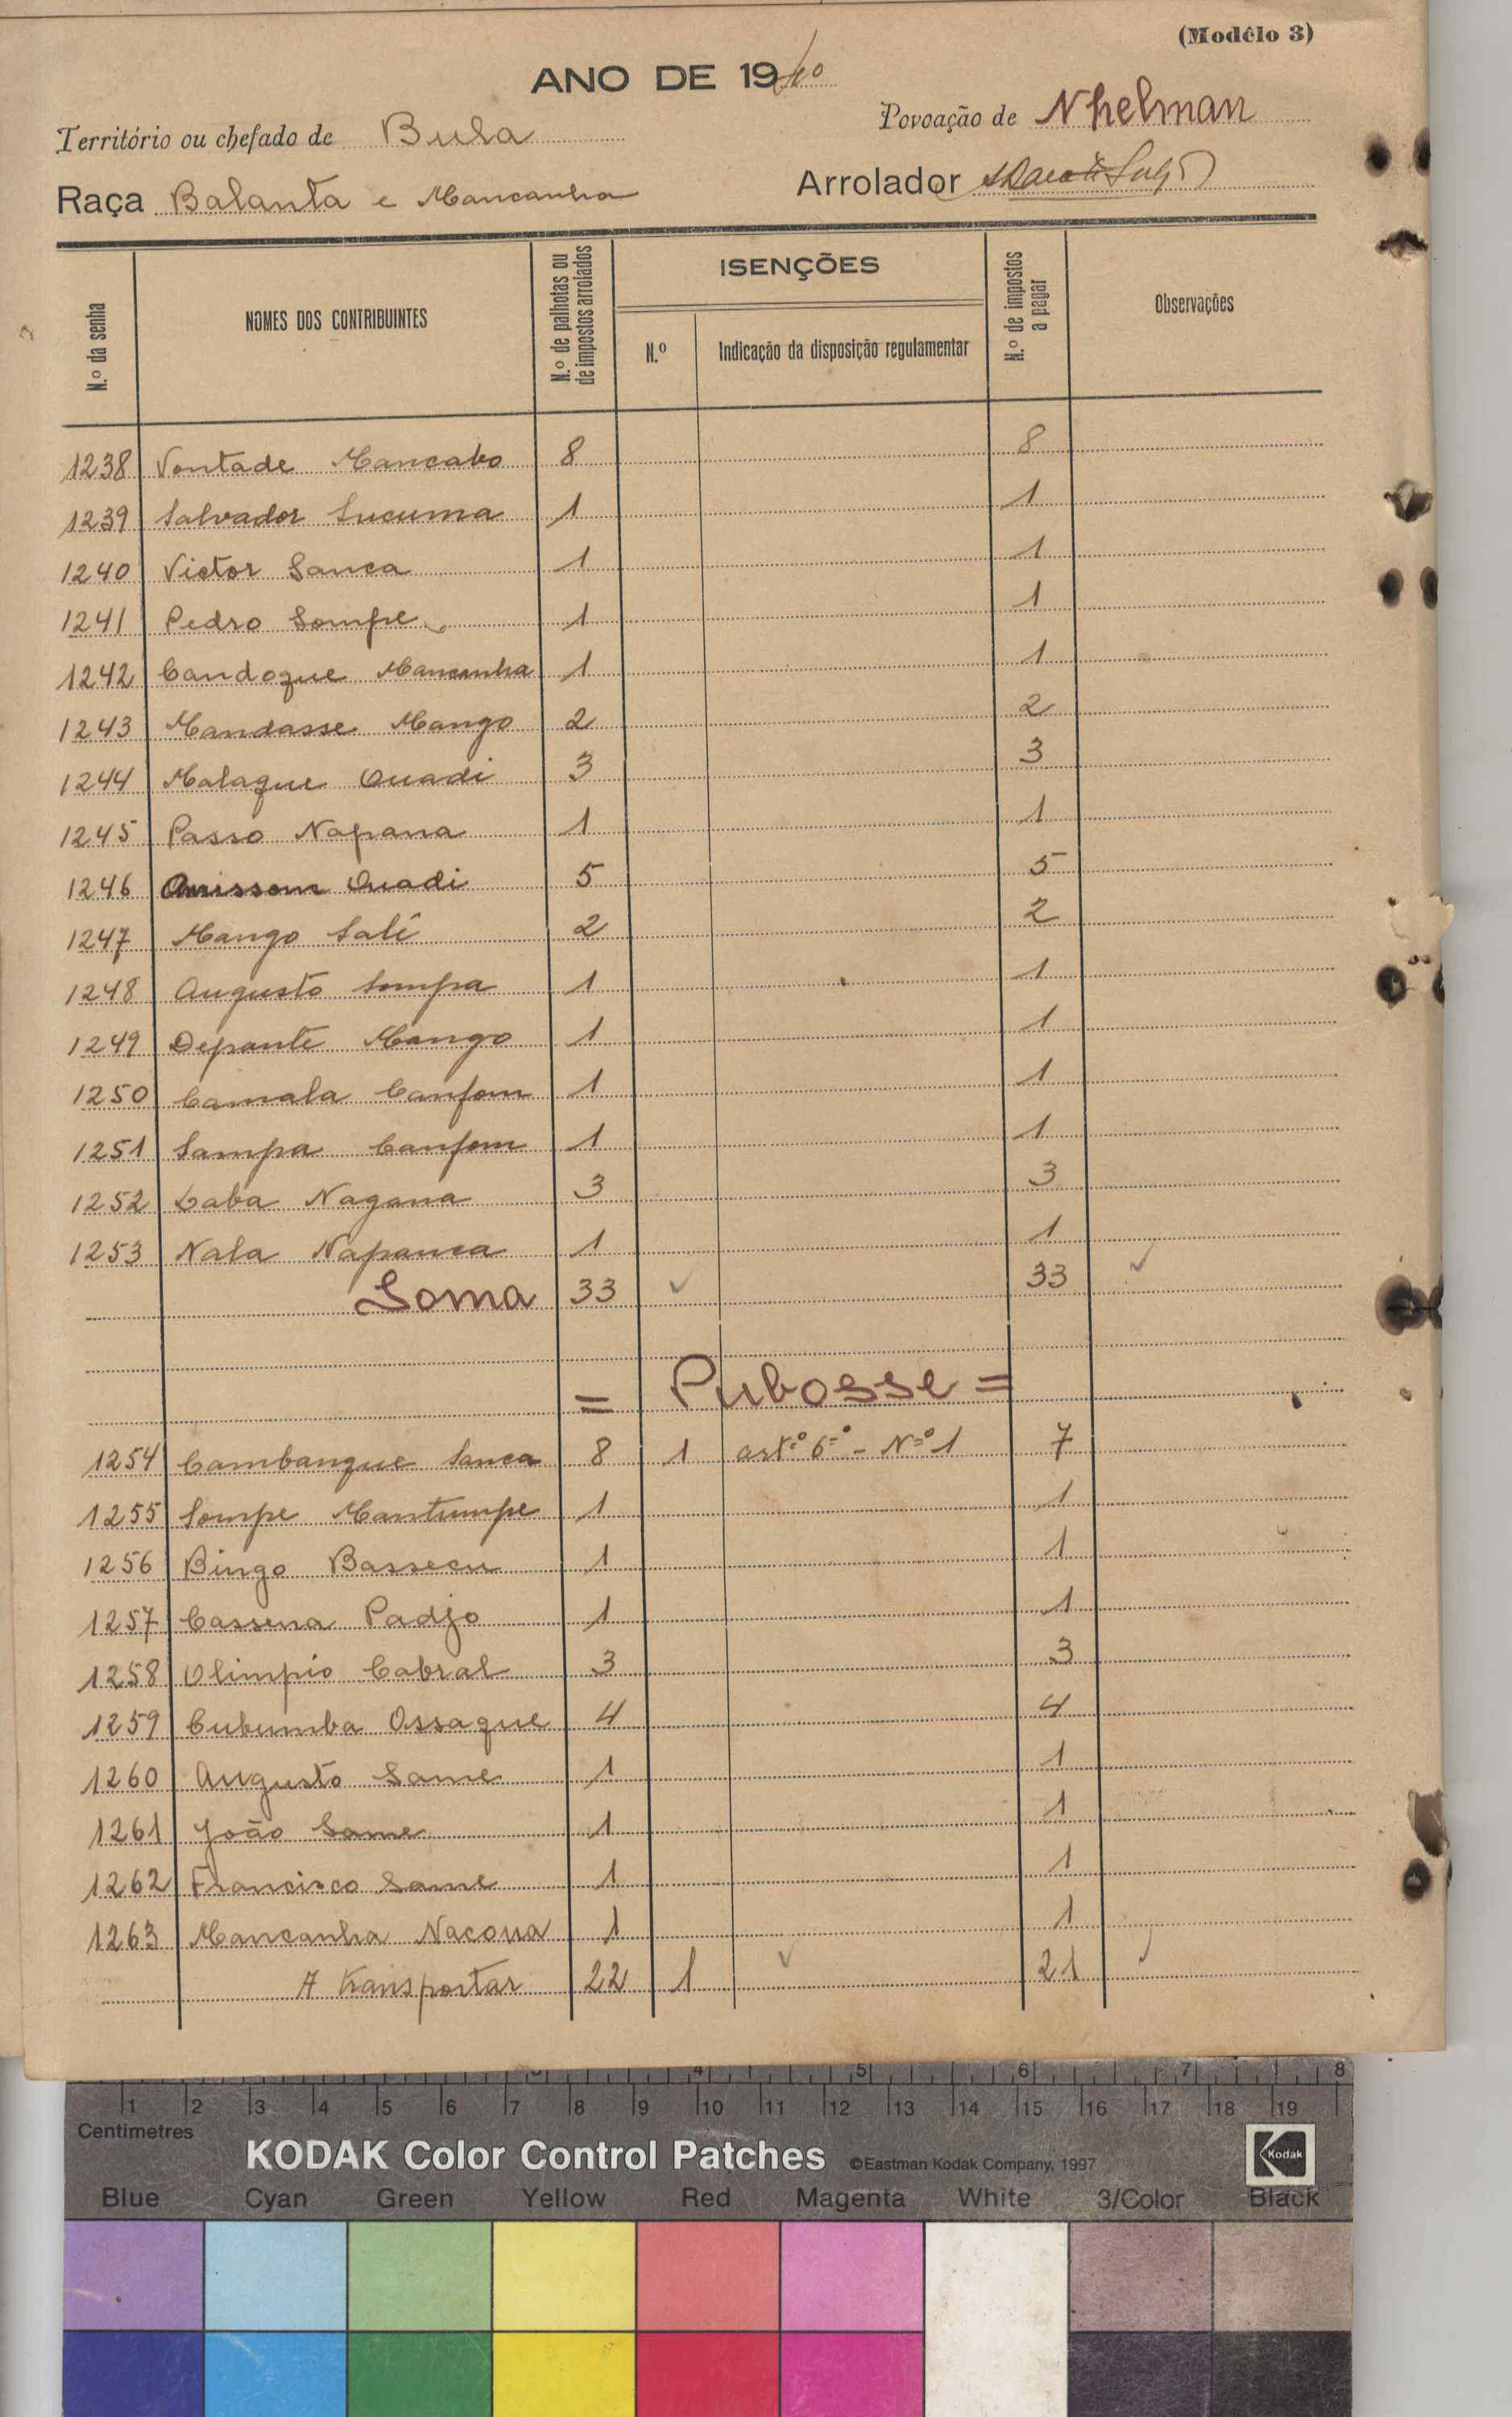 (Modêlo 3)
ANO DE 1940
Território ou chefado de Bula
Povoação de Nhelman
Raça Balanta e Mancanha
Arrolador
N.º da senha
NOMES DOS CONTRIBUINTES
N.º de palhotas ou de impostos arrolados
ISENÇÕES
N.º
Indicação da disposição regulamentar
N.º de impostos a pagar
Observações
1238 Vontade Mancabo 8 8
1239 Salvador Sucuma 1 1
1240 Victor Sanca 1 1
1241 Pedro Sompe 1 1
1242 Candoque Mancanha 1 1
1243 Mandasse Mango 2 2
1244 Malaque Ouadi 3 3
1245 Passo Napana 1 1
1246 Anissom Ouadi 5 5
1247 Mango Salé 2 2
1248 Augusto Sompa 1 1
1249 Depante Mango 1 1
1250 Camala Canfom 1 1
1251 Sampa Canfom 1 1
1252 Laba Nagana 3 3
1253 Nala Napanca 1 1
Soma 33 ✓ 33 ✓
= Pubosse =
1254 Cambanque Sanca 8 1 artº 6º - Nº 1 7
1255 Sompe Mantumpe 1 1
1256 Bingo Bassecu 1 1
1257 Cassena Padjo 1 1
1258 Olimpio Cabral 3 3
1259 Cubumba Ossaque 4 4
1260 Augusto Same 1 1
1261 João Same 1 1
1262 Francisco Same 1 1
1263 Mancanha Nacona 1 1
A transportar 22 1 ✓ 21
3 4 5 6 7 8
1 2 3 4 5 6 7 8 9 10 11 12 13 14 15 16 17 18 19
Centimetres
KODAK Color Control Patches ©Eastman Kodak Company, 1997 Kodak
Blue Cyan Green Yellow Red Magenta White 3/Color Black